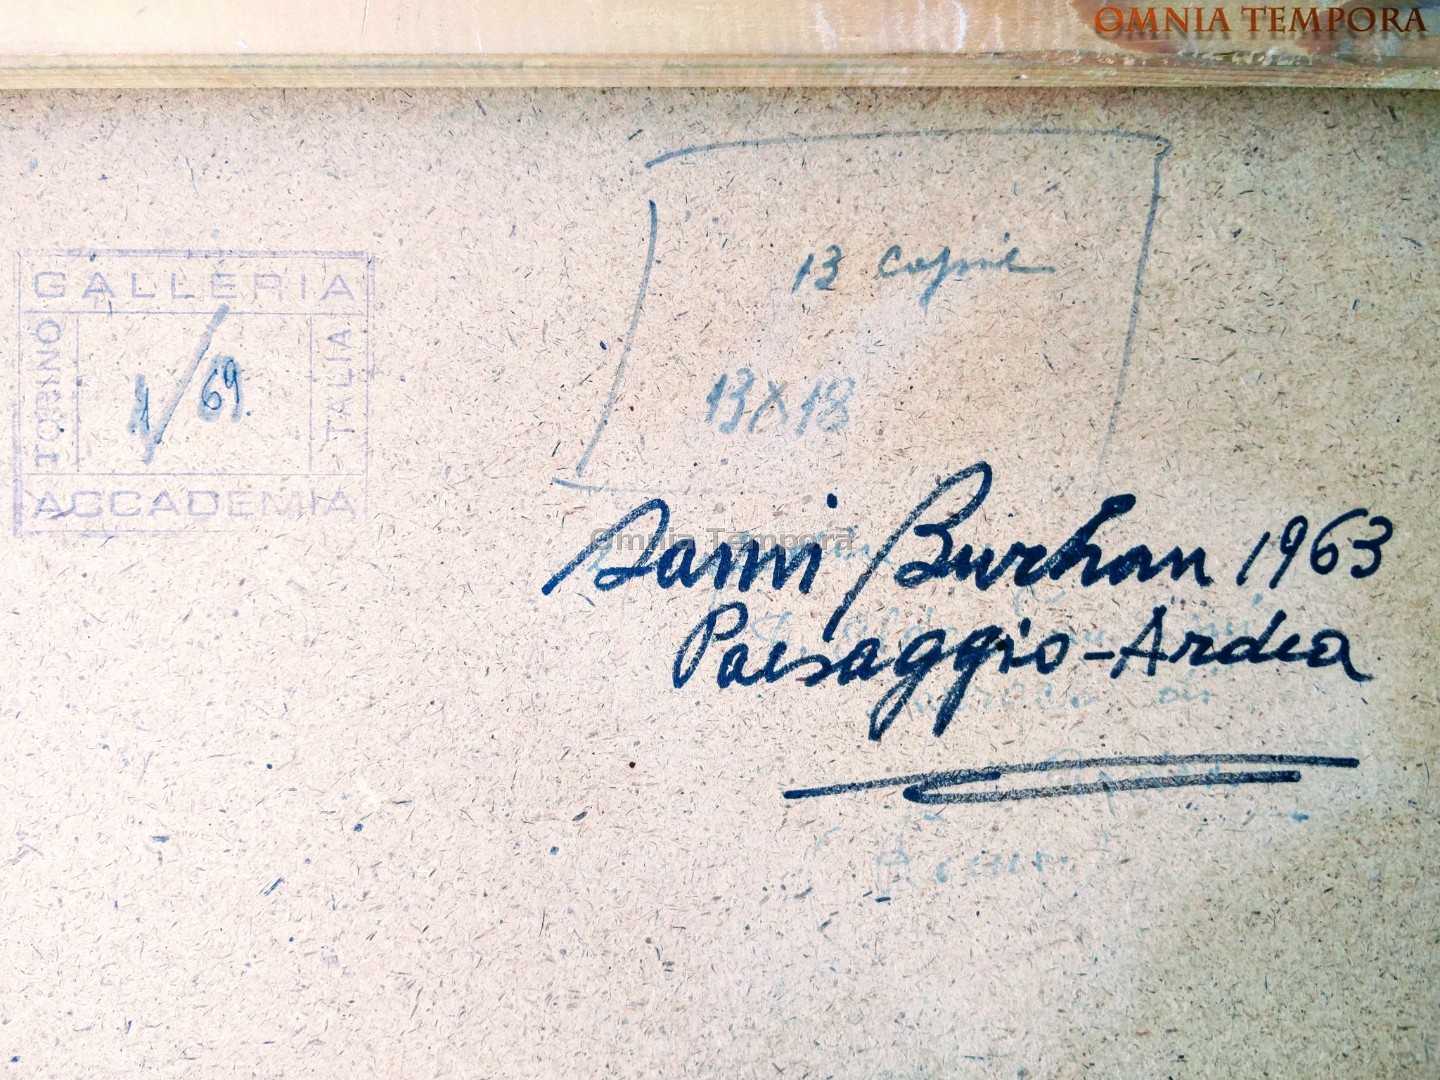 OMNIA TEMPORA
GALLERIA
TORINO
ITALIA
1/69.
ACCADEMIA
13 copie
13X18
Omnia Tempora
Sami Burhan 1963
Paesaggio-Ardea